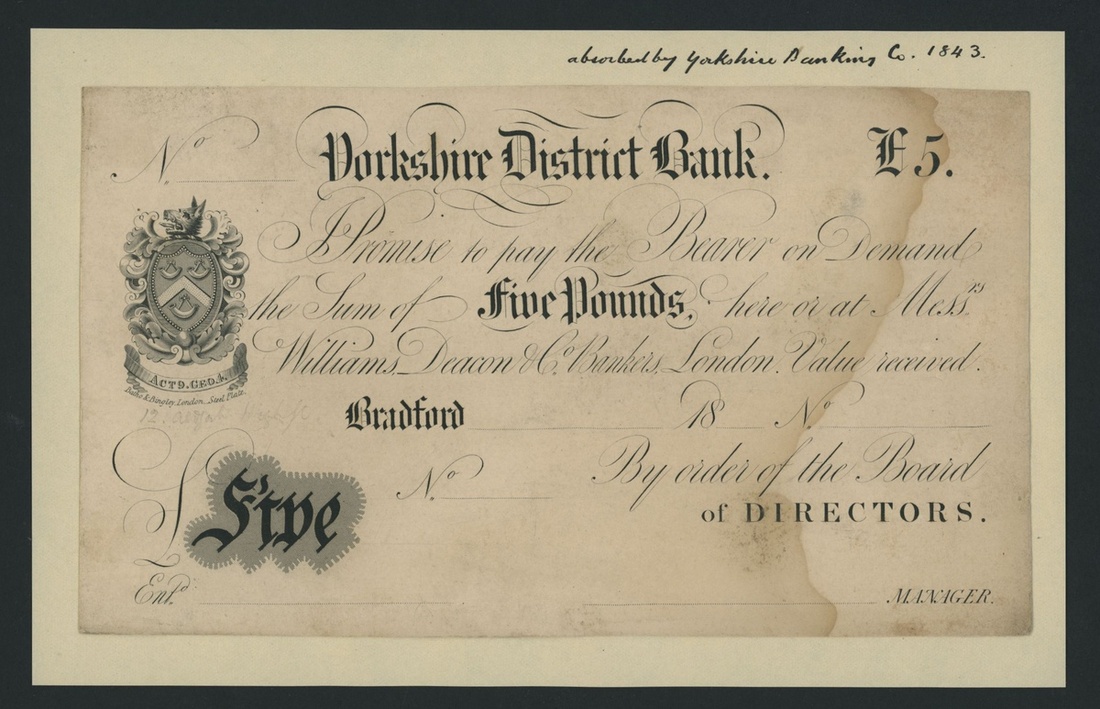 absorbed by Yorkshire Banking Co. 1843.
No
Yorkshire District Bank.
£5.
I Promise to pay the Bearer on Demand
the Sum of Five Pounds, here or at Messrs
Williams, Deacon & Co. Bankers, London. Value received.
ACT 9. GEO. 4.
London. Steel Plate.
Bradford 18 No
£ Five
No
By order of the Board
of DIRECTORS.
Entd.
MANAGER.